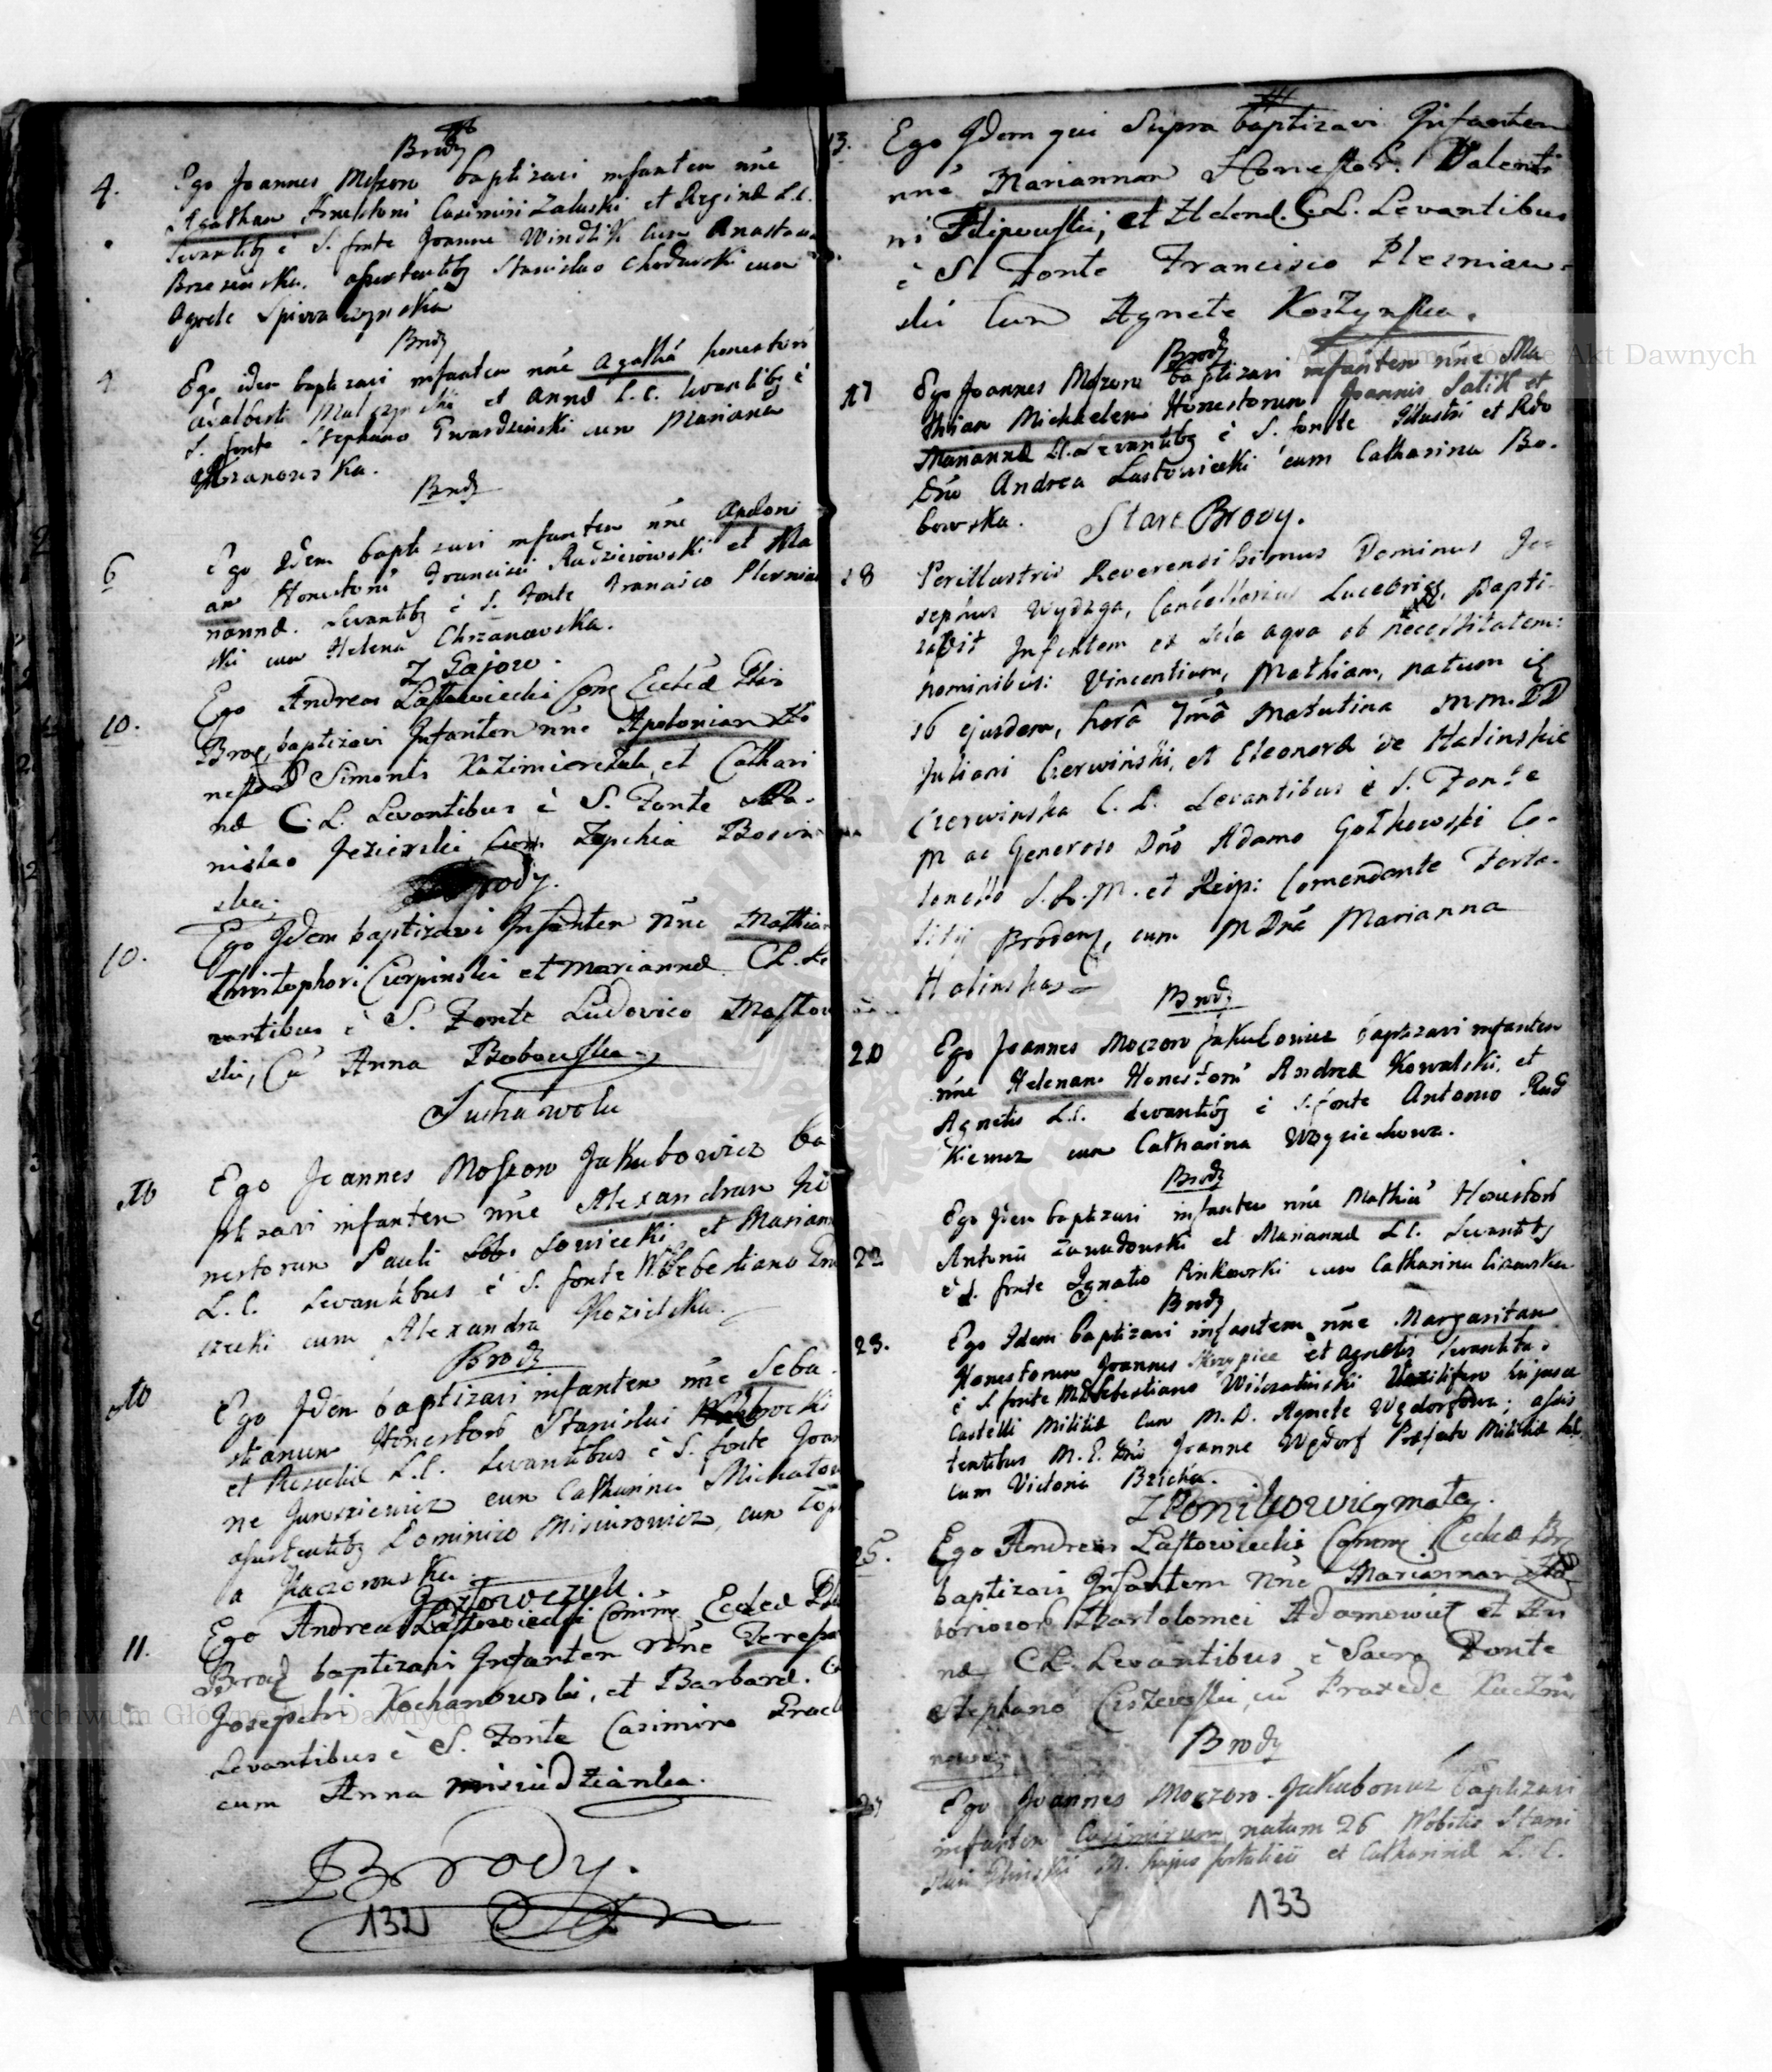 Brody
4. Ego Joannes Moszoro baptizavi infantem nne
Agatham Honestorũ Casimiri Zaluski et Reginæ L.C.
Levantibȝ è S. fonte Joanne Windlik cum Anastasia
Brzezinska. assistentibȝ Stanislao Chodurski cum
Agnete
Brody
Ego idem baptizavi infantem nne Agathã honestorũ
Adalberti et Annæ L.C. levantibȝ è
S. fonte Stephano Gwardzinski cum Mariana
Chrzanowska.
Brody
6 Ego Idem baptizavi infantem nne Apoloni
am Honestorũ Francisci Radziejowski et Ma
riannæ. Levantibȝ è S. Fonte Francisco Plesnia
ski cum Helena Chrzanowska.
Z Gajow.
10. Ego Andreas Lastowiecki Comȝ Ecclæ Plis
Brod, baptizavi Infantem nne Apoloniam Ho
nestor Simonis Kazimierczuk, et Cathari
næ C.L. Levantibus è S. Fonte Sta-
nislao Jezierski cum Zophia
ska.
Brody.
10. Ego Idem baptizavi Infantem nne Mathiam
Christophori Cierpinski et Mariannæ CL. Le
vantibus è S. Fonte Ludovico
ski, Cũ Anna Bobowska
Sucha wola
10 Ego Joannes Moszoro Jakubowicz ba
ptizavi infantem nne Alexandram ho
nestorum Pauli Sowicki et Mariann
L.C. Levantibus è S. fonte M. Sebestiano
cum Alexandra Kozielska.
Brody
10 Ego Idem baptizavi infantem nne Seba
stianum Honestorb Stanislai
et Rosaliæ L.C. Levantibus è S. fonte Joan
ne Juraszkiewicz cum Catharina Michalow
assistentibȝ Dominico Misiurowicz, cum Zop
a Kaczorowska.
Gajowczyk.
11. Ego Andreas Lastowiecki Comȝ Ecclæ Pli
Brod baptizavi Infantem nne Teresia
Josephi Kochanowski, et Barbaræ. C
Levantibus è S. Fonte Casimiro
cum Anna
Brody.
132
13. Ego Idem qui Supra baptizavi Infantem
nnẽ Mariannam Honestor. Valenti
ni Filipowski, et Helenæ. C.L. Levantibus
è S. Fonte Francisco Plesniaw-
ski Cum Agnete
Brody
17 Ego Joannes Moszoro baptizavi infantem nne Ma
thiam Michaelem Honestorum Joannis Salik et
Mariannæ LL. Levantibȝ è S. fonte Illustri et Rdo
Dño Andrea Lastowiecki cum Catharina Bo-
bowska.
Stare Brody.
18 Perillustris Reverendissimus Dominus Jo=
sephus Wydzga, Cancellarius Luceorien, Bapti-
zavit Infantem ex sola aqua ob necessitatem:
nominibus: Vincentium, Mathiam, natum
16 ejusdem, horâ 7mâ Matutina M.M.DD
Juliani Czerwiński, et Eleonoræ de Halinskie
Czerwinska C.L. Levantibus è S. Fonte
M ac Generoso Dño Adamo Golkowski Co-
lonello S.R.M. et Reip: Comendante Forta-
litij Broden, cum M Dnã Marianna
Halinska
Brody
20 Ego Joannes Moszoro Jakubowicz baptizavi infantem
nne Helenam Honestorũ Andreæ Kowalski, et
Agnetis L.C. Levantibȝ è S. fonte Antonio Rad
kiewicz cum Catharina Woyciechowa.
Brody
22 Ego Idem baptizavi infantem nne Mathiã Honestorb
Antonii Zawadowski et Mariannæ L.C. Levantibȝ
è S. fonte Ignatio Pinkowski cum Catharina
Brody
23. Ego Idem baptizavi infantem nne Margaritam
Honestorum Joannis Skrzypiec et Agnetis Levantibȝ
è S fonte M.D. Sebestiano Vexilifero hujusce
Castelli Militiæ cum M.D. Agnete Wędorfowa; assis
tentibus M.G. Dño Joanne Wędorf Præfecto Militiæ
cum Victoria
Z Ponikowicymałey.
25. Ego Andreas Lastowiecki Comȝ Ecclæ Br
baptizavi Infantem Nne Mariannam La
boriosorb Bartolomei Adamowicz et An
næ CL. Levantibus è Sacro Fonte
Stephano cũ Praxede
Brody
Ego Joannes Moszoro Jakubowicz baptizavi
infantem Casimirum natum 26 Nobilis Stani
slai hujus fortalicii et Catharinæ L.C.
133
Archiwum Główne Akt Dawnych
Archiwum Główne Akt Dawnych